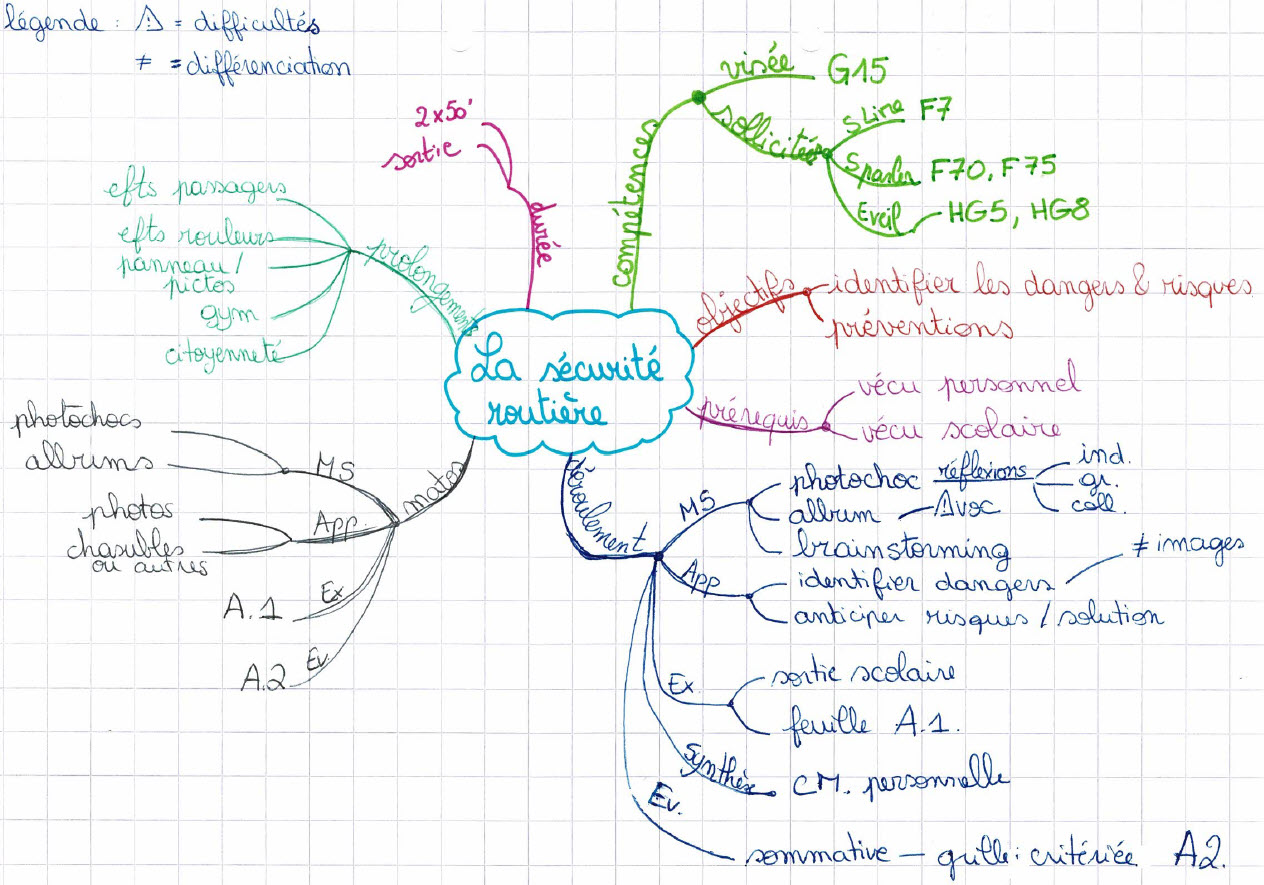 légende : ⚠ = difficultés
≠ = différenciation
La sécurité
routière
compétences
visée G15
sollicitées
S Lire F7
S parler F70, F75
Eveil HG5, HG8
objectifs
identifier les dangers & risques
préventions
prérequis
vécu personnel
vécu scolaire
déroulement
MS
photochoc réflexions
ind.
gr.
coll.
album ⚠ voc
brainstorming
App
identifier dangers
≠ images
anticiper risques / solution
Ex
sortie scolaire
feuille A.1.
Synthèse CM. personnelle
Ev.
sommative – grille : critériée A2.
matos
MS
photochocs
albums
App.
photos
chasubles
ou autres
Ex
A.1
Ev.
A.2
prolongements
efts passagers
efts rouleurs
panneau /
pictos
gym
citoyenneté
durée
2x50'
sortie